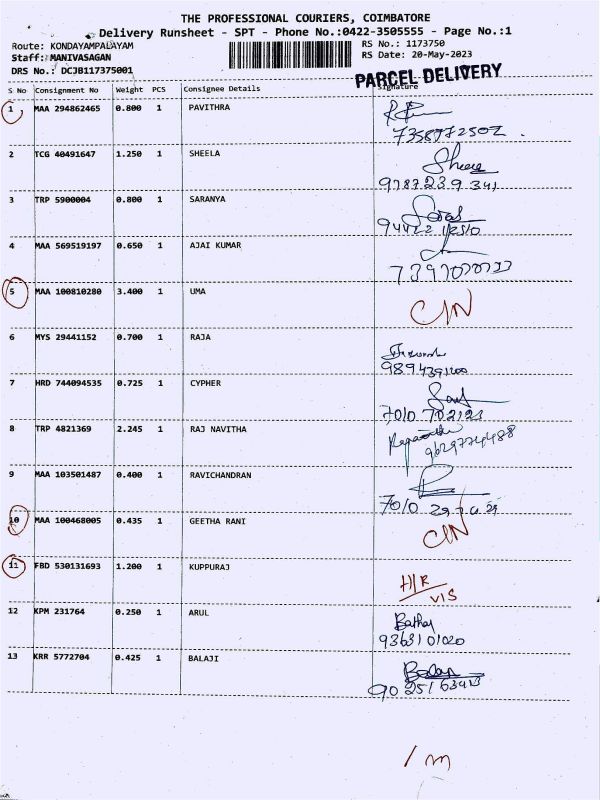 THE PROFESSIONAL COURIERS, COIMBATORE
Delivery Runsheet - SPT - Phone No.:0422-3505555 - Page No.:1
Route: KONDAYAMPALAYAM RS No.: 1173750
Staff: MANIVASAGAN RS Date: 20-May-2023
DRS No.: DCJB117375001 PARCEL DELIVERY
S No Consignment No Weight PCS Consignee Details Signature
1 MAA 294862465 0.800 1 PAVITHRA
2 TCG 40491647 1.250 1 SHEELA Sheela
3 TRP 5900004 0.800 1 SARANYA
4 MAA 569519197 0.650 1 AJAI KUMAR
5 MAA 100810280 3.400 1 UMA C/N
6 MYS 29441152 0.700 1 RAJA
9894391200
7 HRD 744094535 0.725 1 CYPHER
7010 702123
8 TRP 4821369 2.245 1 RAJ NAVITHA
9629774488
9 MAA 103501487 0.400 1 RAVICHANDRAN
10 MAA 100468005 0.435 1 GEETHA RANI C/N
11 FBD 530131693 1.200 1 KUPPURAJ H/R
VIS
12 KPM 231764 0.250 1 ARUL
9363101020
13 KRR 5772704 0.425 1 BALAJI
1 m